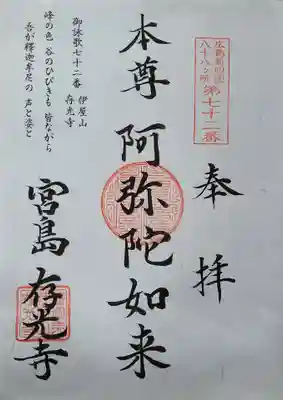 奉拝
広島新四国
八十八ヶ所
第七十二番
本尊 阿弥陀如来
伊屋山
御詠歌七十二番 存光寺
峰の色 谷のひびきも 皆ながら
吾が釋迦牟尼の 声と姿と
宮島 存光寺